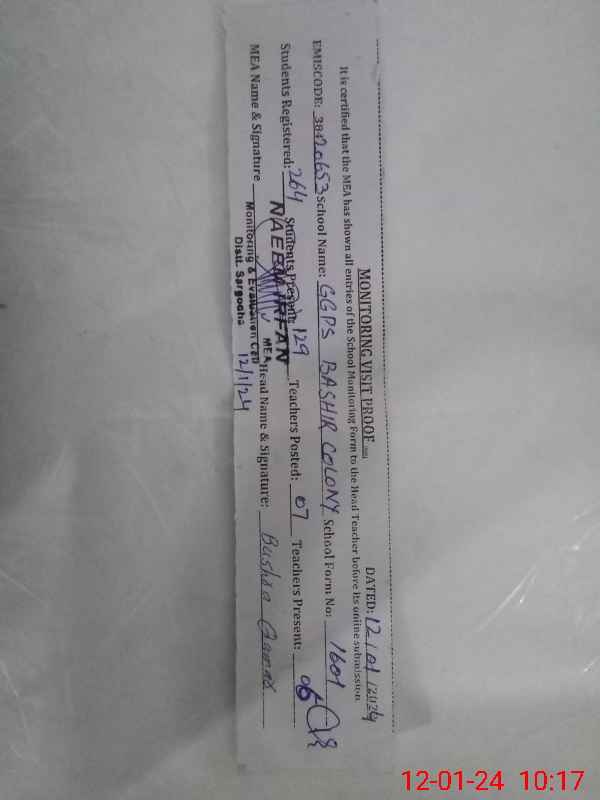 MONITORING VISIT PROOF
DATED: 12/01/2024
It is certified that the MEA has shown all entries of the School Monitoring Form to the Head Teacher before its online submission
EMISCODE: 38420653 School Name: GGPS BASHIR COLONY School Form No: 1601
Students Registered: 264 Students Present: 129 Teachers Posted: 07 Teachers Present: 06
MEA Name & Signature NAEEM IRFAN Head Name & Signature: Bushra
MEA
Monitoring & Evaluation Cell
Distt. Sargodha
12/1/24
12-01-24 10:17